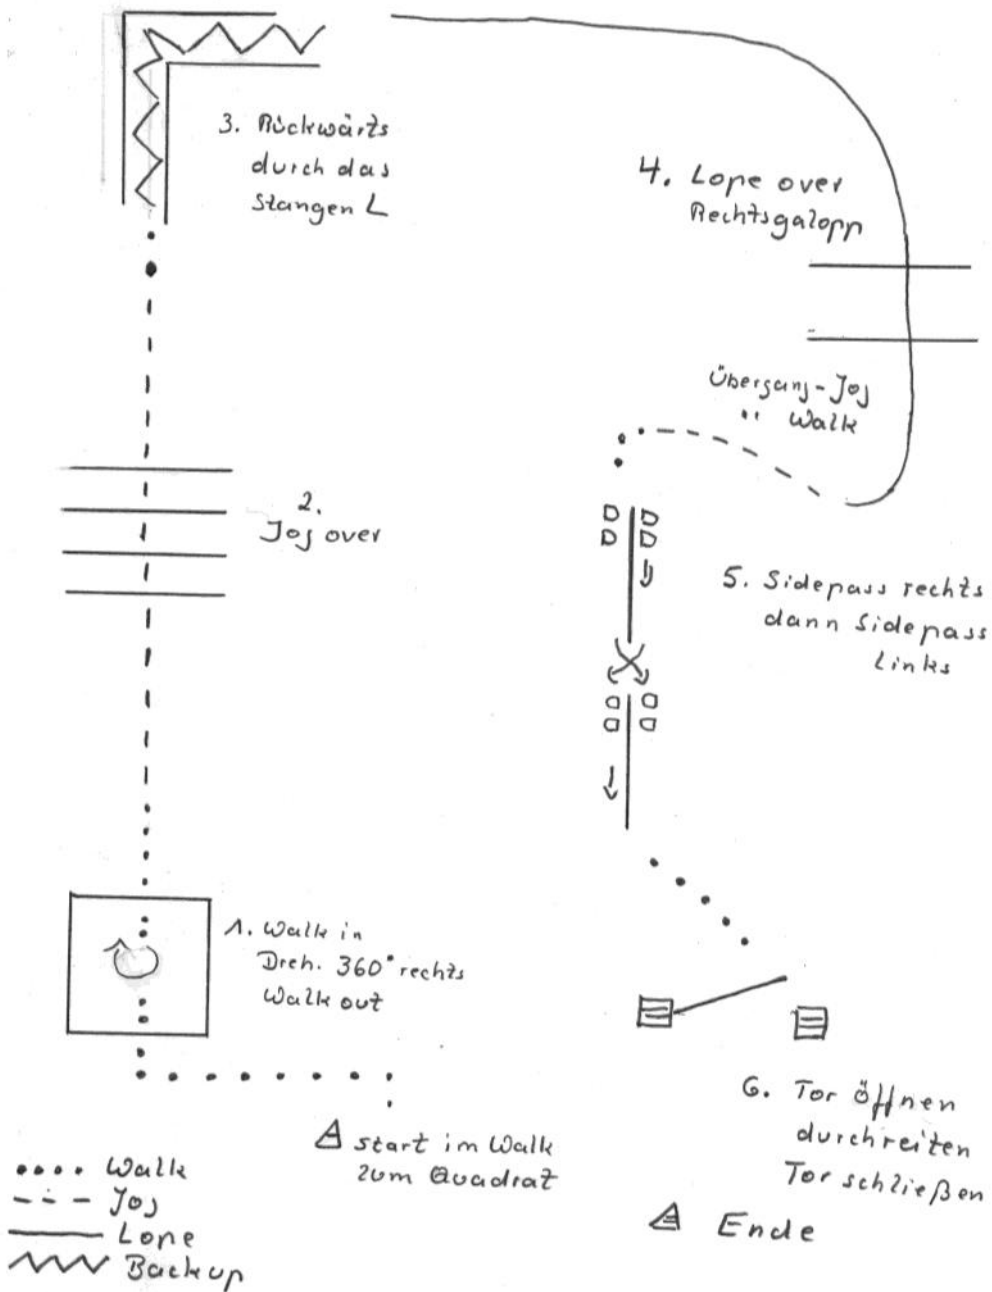 3. Rückwärts
durch das
Stangen L
4. Lope over
Rechtsgalopp
Übergang-Jog
" Walk
2.
Jog over
5. Sidepass rechts
dann Sidepass
Links
1. Walk in
Dreh. 360° rechts
Walk out
6. Tor öffnen
durchreiten
Tor schließen
Start im Walk
zum Quadrat
Ende
Walk
Jog
Lope
Backup